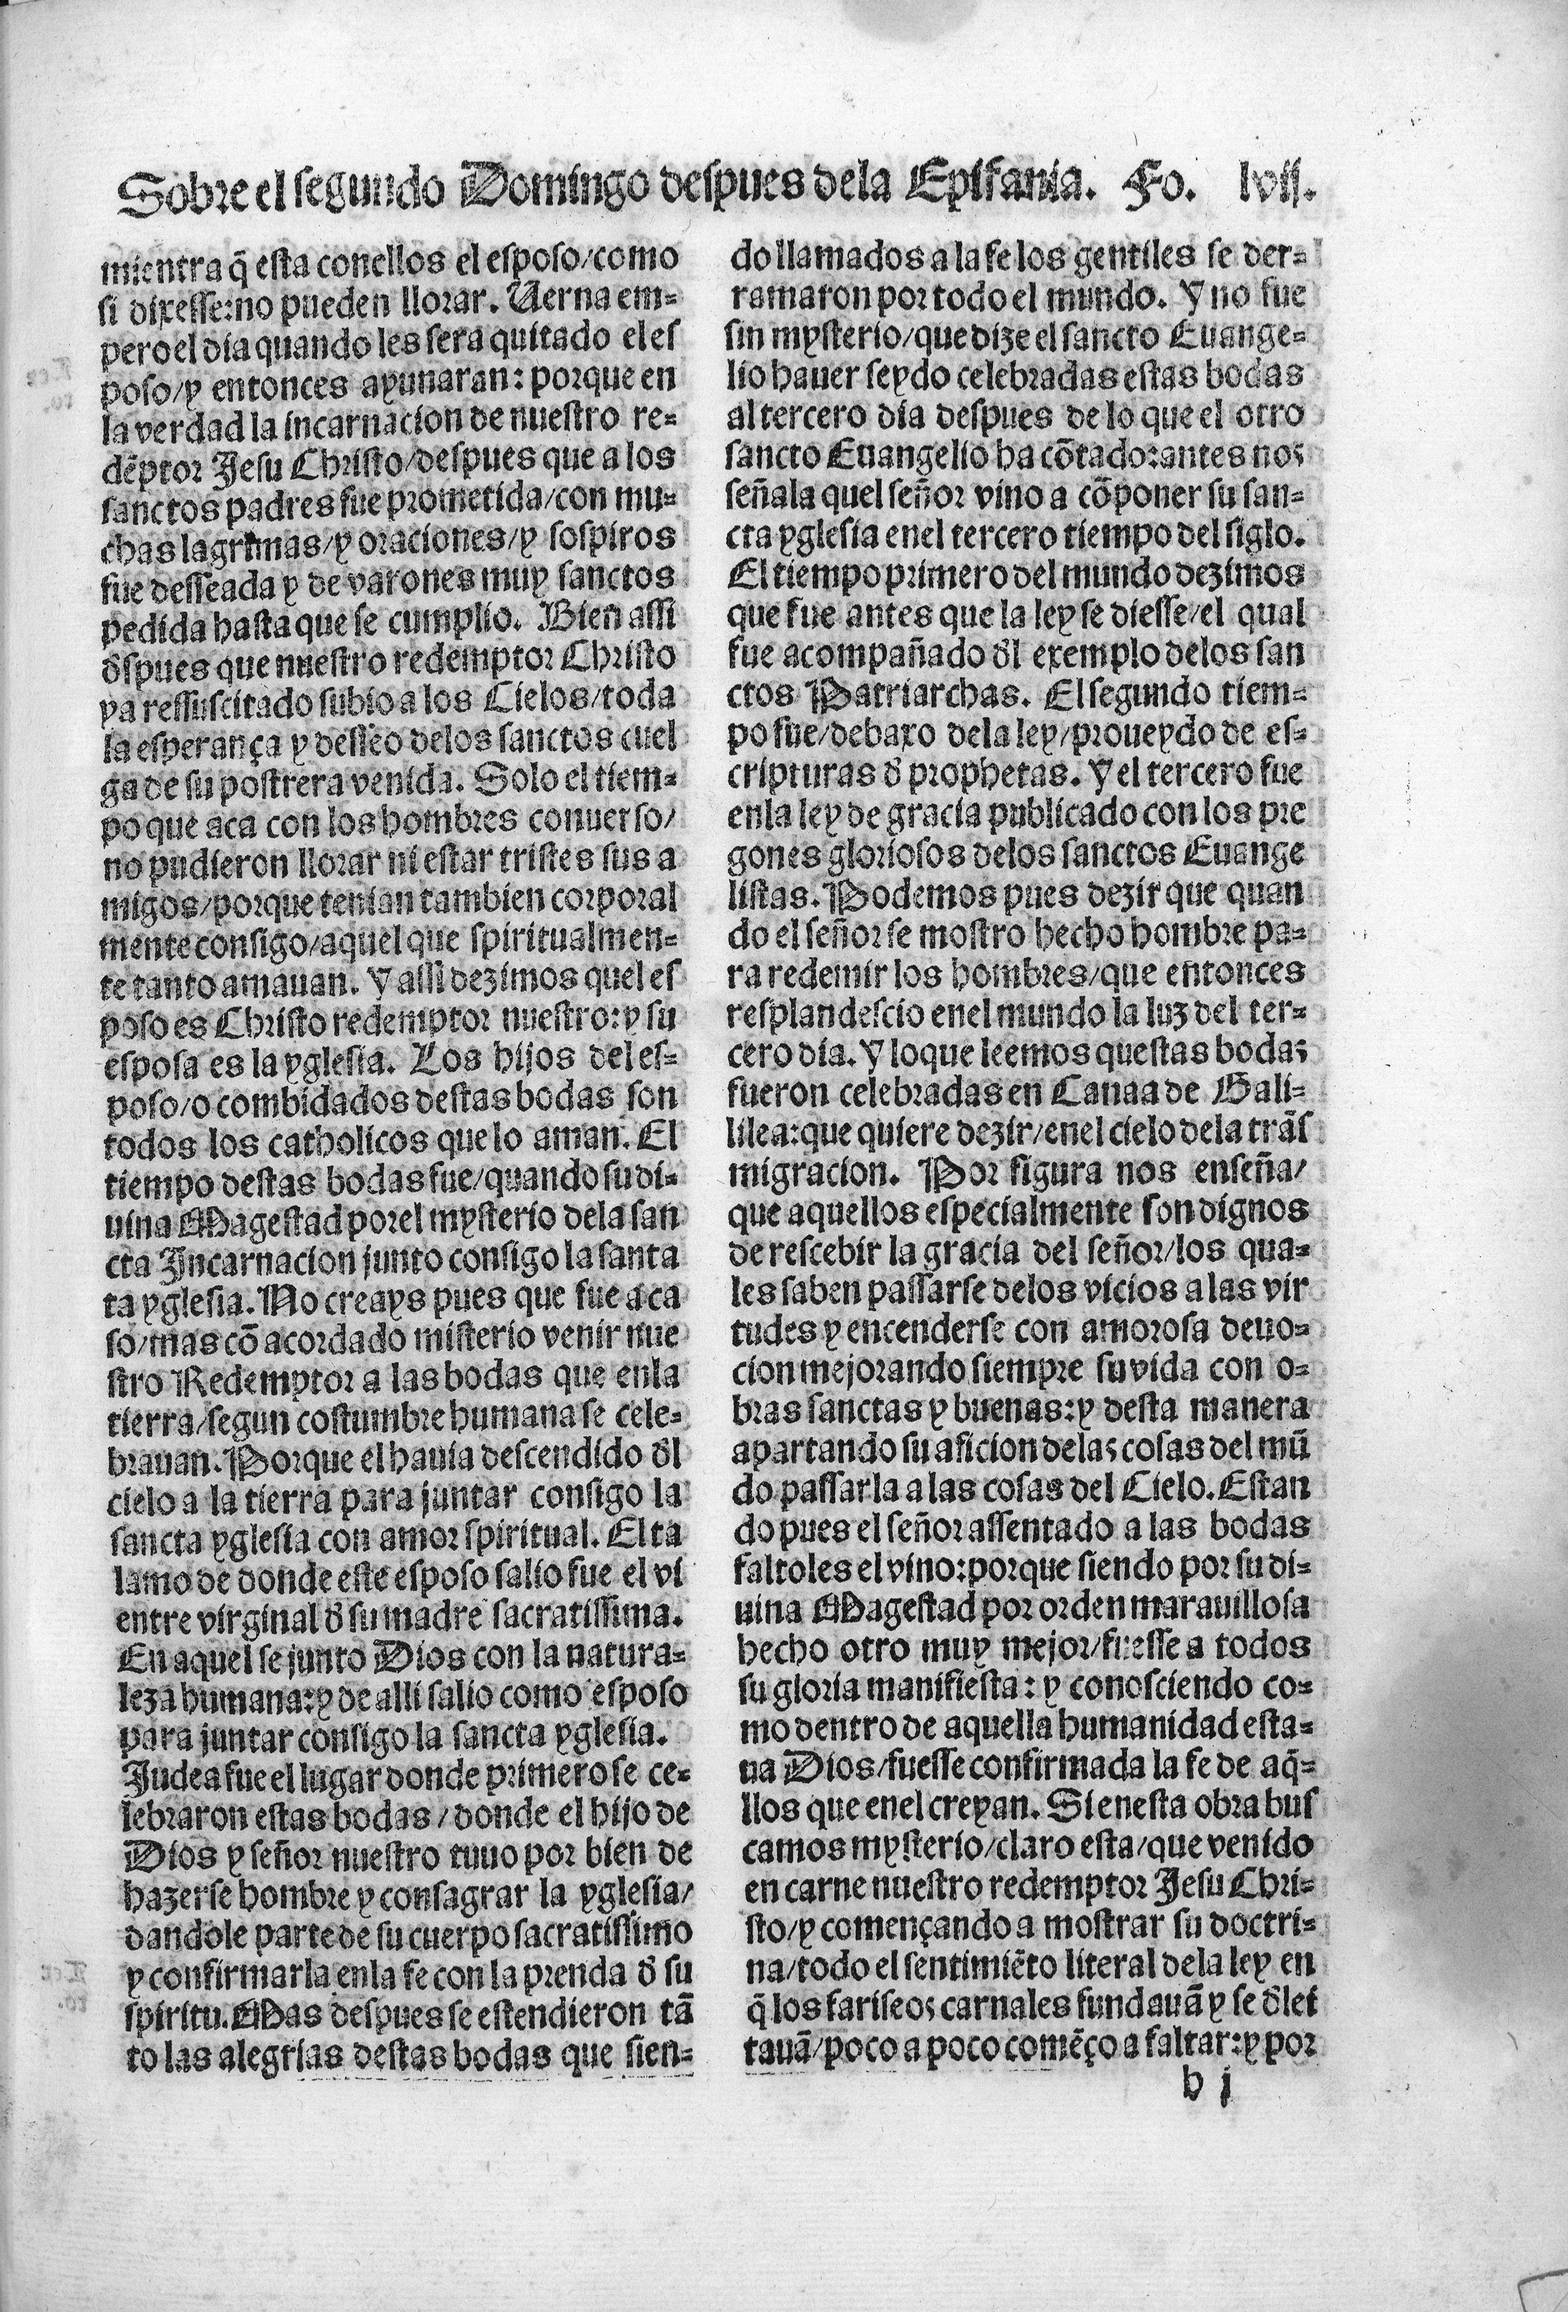 Sobre el segundo Domingo despues dela Epifania. Fo. lvij.
mientra q̃ esta conellos el esposo/como
si dixesse:no pueden llorar. Uerna em-
pero el dia quando les sera quitado el es
poso/y entonces ayunaran: porque en
la verdad la incarnacion de nuestro re-
dẽptor Jesu Christo/despues que a los
sanctos padres fue prometida/con mu-
chas lagrimas/y oraciones/y sospiros
fue desseada y de varones muy sanctos
pedida hasta que se cumplio. Bien assi
d̃spues que nuestro redemptor Christo
ya ressuscitado subio a los Cielos/toda
la esperança y desseo delos sanctos cuel
ga de su postrera venida. Solo el tiem-
po que aca con los hombres conuerso/
no pudieron llorar ni estar tristes sus a
migos/porque tenian tambien corporal
mente consigo/aquel que spiritualmen-
te tanto amauan. Y assi dezimos quel es
poso es Christo redemptor nuestro:y su
esposa es la yglesia. Los hijos del es-
poso/o combidados destas bodas son
todos los catholicos que lo aman. El
tiempo destas bodas fue/quando su di-
uina Magestad porel mysterio dela san
cta Incarnacion junto consigo la santa
ta yglesia. No creays pues que fue a ca
so/mas cõ acordado misterio venir nue
stro Redemptor a las bodas que enla
tierra/segun costumbre humana se cele-
brauan. Porque el hauia descendido d̃l
cielo a la tierra para juntar consigo la
sancta yglesia con amor spiritual. El ta
lamo de donde este esposo salio fue el vi
entre virginal d̃ su madre sacratissima.
En aquel se junto Dios con la natura-
leza humana:y de alli salio como esposo
para juntar consigo la sancta yglesia.
Judea fue el lugar donde primero se ce-
lebraron estas bodas/donde el hijo de
Dios y señor nuestro tuuo por bien de
hazerse hombre y consagrar la yglesia/
dandole parte de su cuerpo sacratissimo
y confirmarla enla fe con la prenda d̃ su
spiritu. Mas despues se estendieron tã
to las alegrias destas bodas que sien-
do llamados a la fe los gentiles se der-
ramaron por todo el mundo. Y no fue
sin mysterio/que dize el sancto Euange-
lio hauer seydo celebradas estas bodas
al tercero dia despues de lo que el otro
sancto Euangelio ha cõtado:antes nos
señala quel señor vino a cõponer su san-
cta yglesia enel tercero tiempo del siglo.
El tiempo primero del mundo dezimos
que fue antes que la ley se diesse/el qual
fue acompañado d̃l exemplo delos san
ctos Patriarchas. El segundo tiem-
po fue/debaxo dela ley/proueydo de es-
cripturas d̃ prophetas. Y el tercero fue
enla ley de gracia publicado con los pre
gones gloriosos delos sanctos Euange
listas. Podemos pues dezir que quan
do el señor se mostro hecho hombre pa-
ra redemir los hombres/que entonces
resplandescio enel mundo la luz del ter-
cero dia. Y loque leemos questas bodas
fueron celebradas en Canaa de Gali-
lilea:que quiere dezir/enel cielo dela trãs
migracion. Por figura nos enseña/
que aquellos especialmente son dignos
de rescebir la gracia del señor/los qua-
les saben passarse delos vicios a las vir
tudes y encenderse con amorosa deuo-
cion mejorando siempre su vida con o-
bras sanctas y buenas:y desta manera
apartando su aficion delas cosas del mũ
do passarla a las cosas del Cielo. Estan
do pues el señor assentado a las bodas
faltoles el vino:porque siendo por su di-
uina Magestad por orden marauillosa
hecho otro muy mejor/fuesse a todos
su gloria manifiesta: y conosciendo co-
mo dentro de aquella humanidad esta-
ua Dios/fuesse confirmada la fe de aq̃-
llos que enel creyan. Si enesta obra bus
camos mysterio/claro esta/que venido
en carne nuestro redemptor Jesu Chri-
sto/y començando a mostrar su doctri-
na/todo el sentimiẽto literal dela ley en
q̃ los fariseos carnales fundauã y se d̃lei
tauã/poco a poco comẽço a faltar:y por
h j